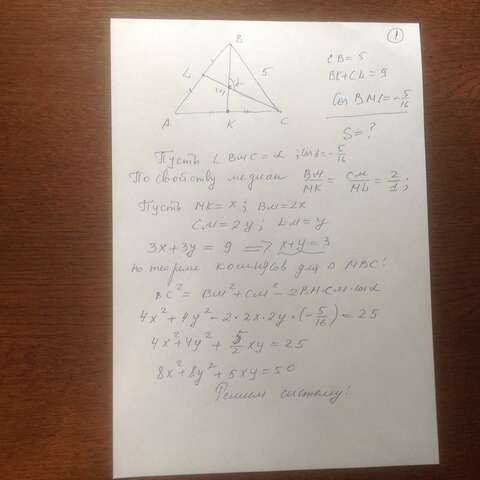 1
B
L
5
M
α
A
K
C
CB = 5
BK + CL = 9
Cos BMC = -5/16
S = ?
Пусть ∠ BMC = α ; cos α = -5/16
По свойству медиан BM/MK = CM/ML = 2/1 ;
Пусть MK = x ; BM = 2x
CM = 2y ; LM = y
3x + 3y = 9 => x + y = 3
По теореме косинусов для Δ MBC:
BC² = BM² + CM² - 2BM·CM·cos α
4x² + 4y² - 2·2x·2y·(-5/16) = 25
4x² + 4y² + 5/2 xy = 25
8x² + 8y² + 5xy = 50
Решим систему: